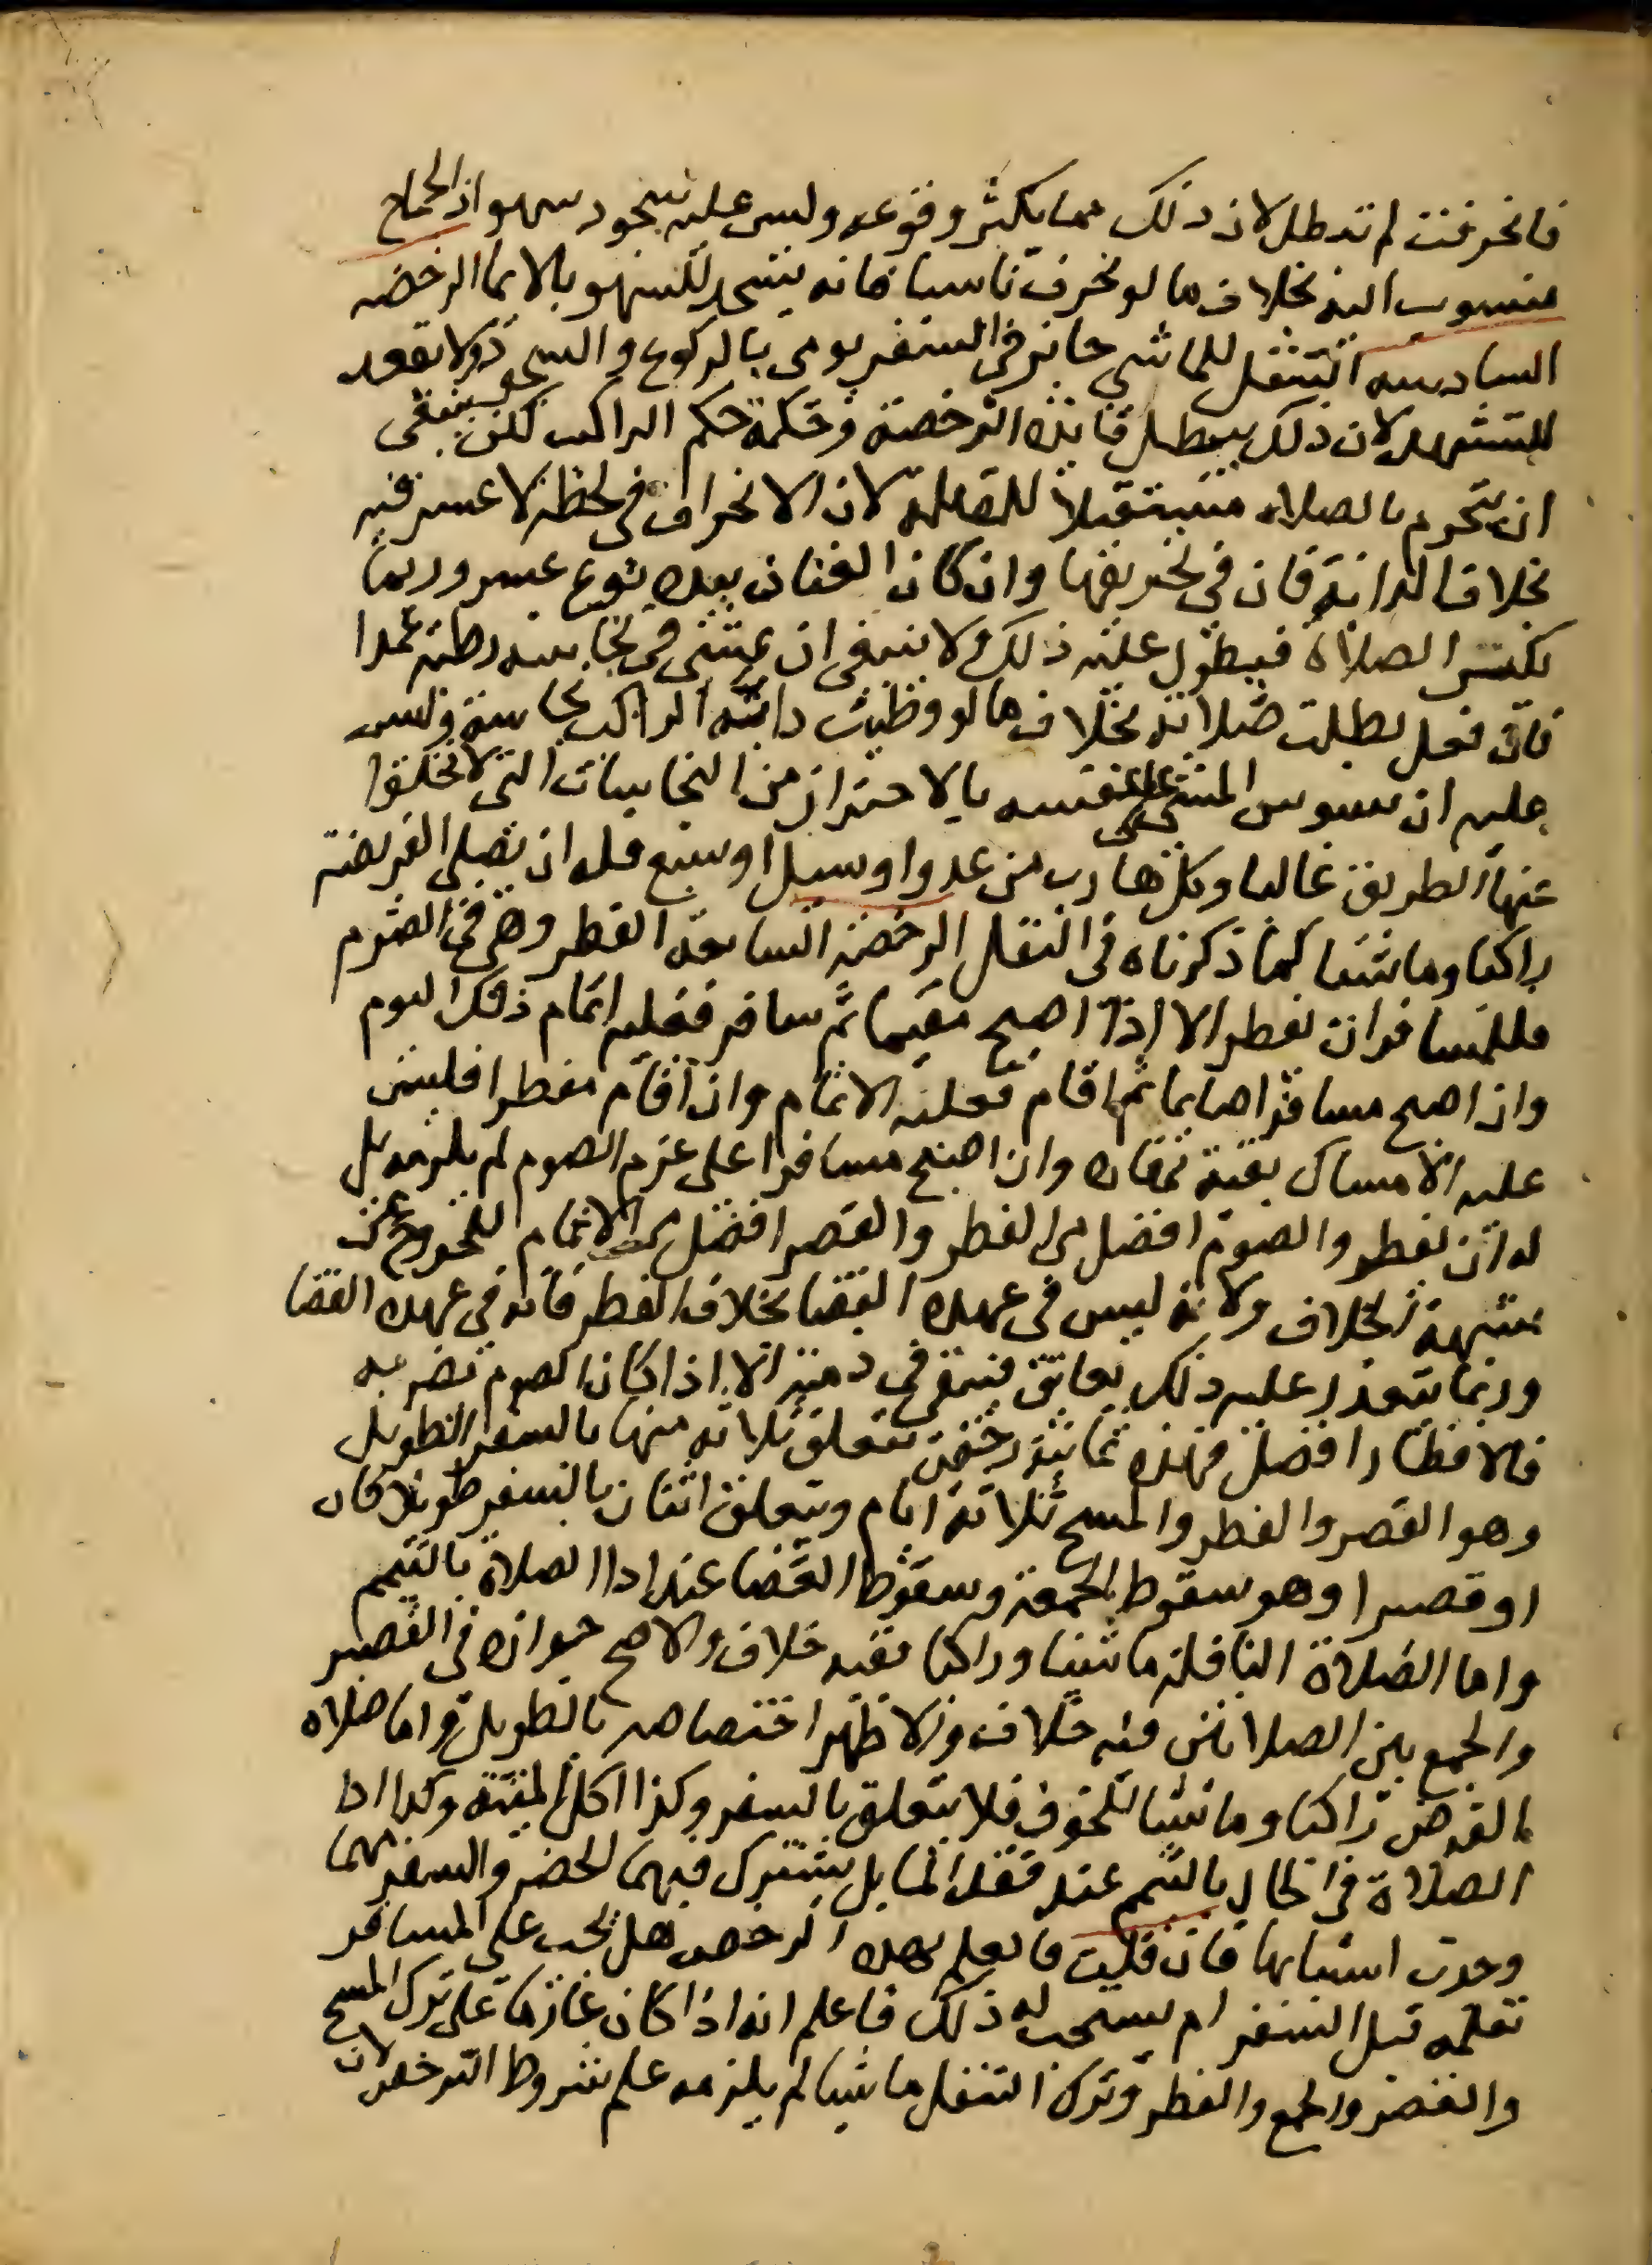 فانحرفت لم تبطل لان ذلك مما يكثر وقوعه وليس عليه سجود سهو اذ الجماح
منسوب اليه بخلاف ما لو تحرف ناسيا فانه يسجد للسهو بالايما الرخصه
السادسه التنفل للماشي جائز في السفر يومي بالركوع والسجود ولا يقعد
للتشهد لان ذلك يبطل فائده الرخصة وحكمه حكم الراكب لكن ينبغي
ان يتحرم بالصلاه مستقبلا للقبله لان الانحراف في لحظه لا عسر فيه
بخلاف الدابة فان في تحريفها وان كان العنان بيده نوع عسر وربما
تكثر الصلاة فيطول عليه ذلك ولا ينبغي ان يمشي في نجاسه رطبه عمدا
فان فعل بطلت صلاته بخلاف ما لو وطيت دابة الراكب نجاسة وليس
عليه ان يشوش المشي على نفسه بالاحتراز من النجاسات التي لا تخلوا
عنها الطريق غالبا وكل هارب من عدو او سيل او سبع فله ان يصلي الفريضة
راكبا وماشيا كما ذكرناه في التنفل الرخصه السابعة الفطر وهي في الصوم
فللمسافر ان يفطر الا اذا اصبح مقيما ثم سافر فعليه اتمام ذلك اليوم
وان اصبح مسافرا صايما ثم اقام فعليه الاتمام وان اقام مفطرا فليس
عليه الامساك بقية نهاره وان اصبح مسافرا على عزم الصوم لم يلزمه بل
له ان يفطر والصوم افضل من الفطر والقصر افضل من الاتمام للخروج عن
شبهة الخلاف ولانه ليس في عهده القضا بخلاف الفطر فانه في عهده القضا
وربما يتعذر عليه ذلك بعائق فيبقى في ذمته الا اذا كان الصوم يضر به
فالافطار افضل فهذه ثمانية رخص تتعلق ثلاثه منها بالسفر الطويل
وهو القصر والفطر والمسح ثلاثة ايام ويتعلق اثنان بالسفر طويلا كان
او قصيرا وهو سقوط الجمعة وسقوط القضا عند ادا الصلاة بالتيمم
واما الصلاة النافله ماشيا وراكبا ففيه خلاف والاصح جوازه في القصير
والجمع بين الصلاتين فيه خلاف والاظهر اختصاصه بالطويل واما صلاه
الفرض راكبا وماشيا للخوف فلا يتعلق بالسفر وكذا اكل الميتة وكذا ادا
الصلاة في الحال بالتيمم عند فقد الما بل يشترك فيهما الحضر والسفر مهما
وجدت اسبابها فان قلت فالعلم بهذه الرخص هل يجب على المسافر
تعلمه قبل السفر ام يستحب له ذلك فاعلم انه اذا كان عازما على ترك المسح
والقصر والجمع والفطر وترك التنفل ماشيا لم يلزمه علم شروط الترخص لان